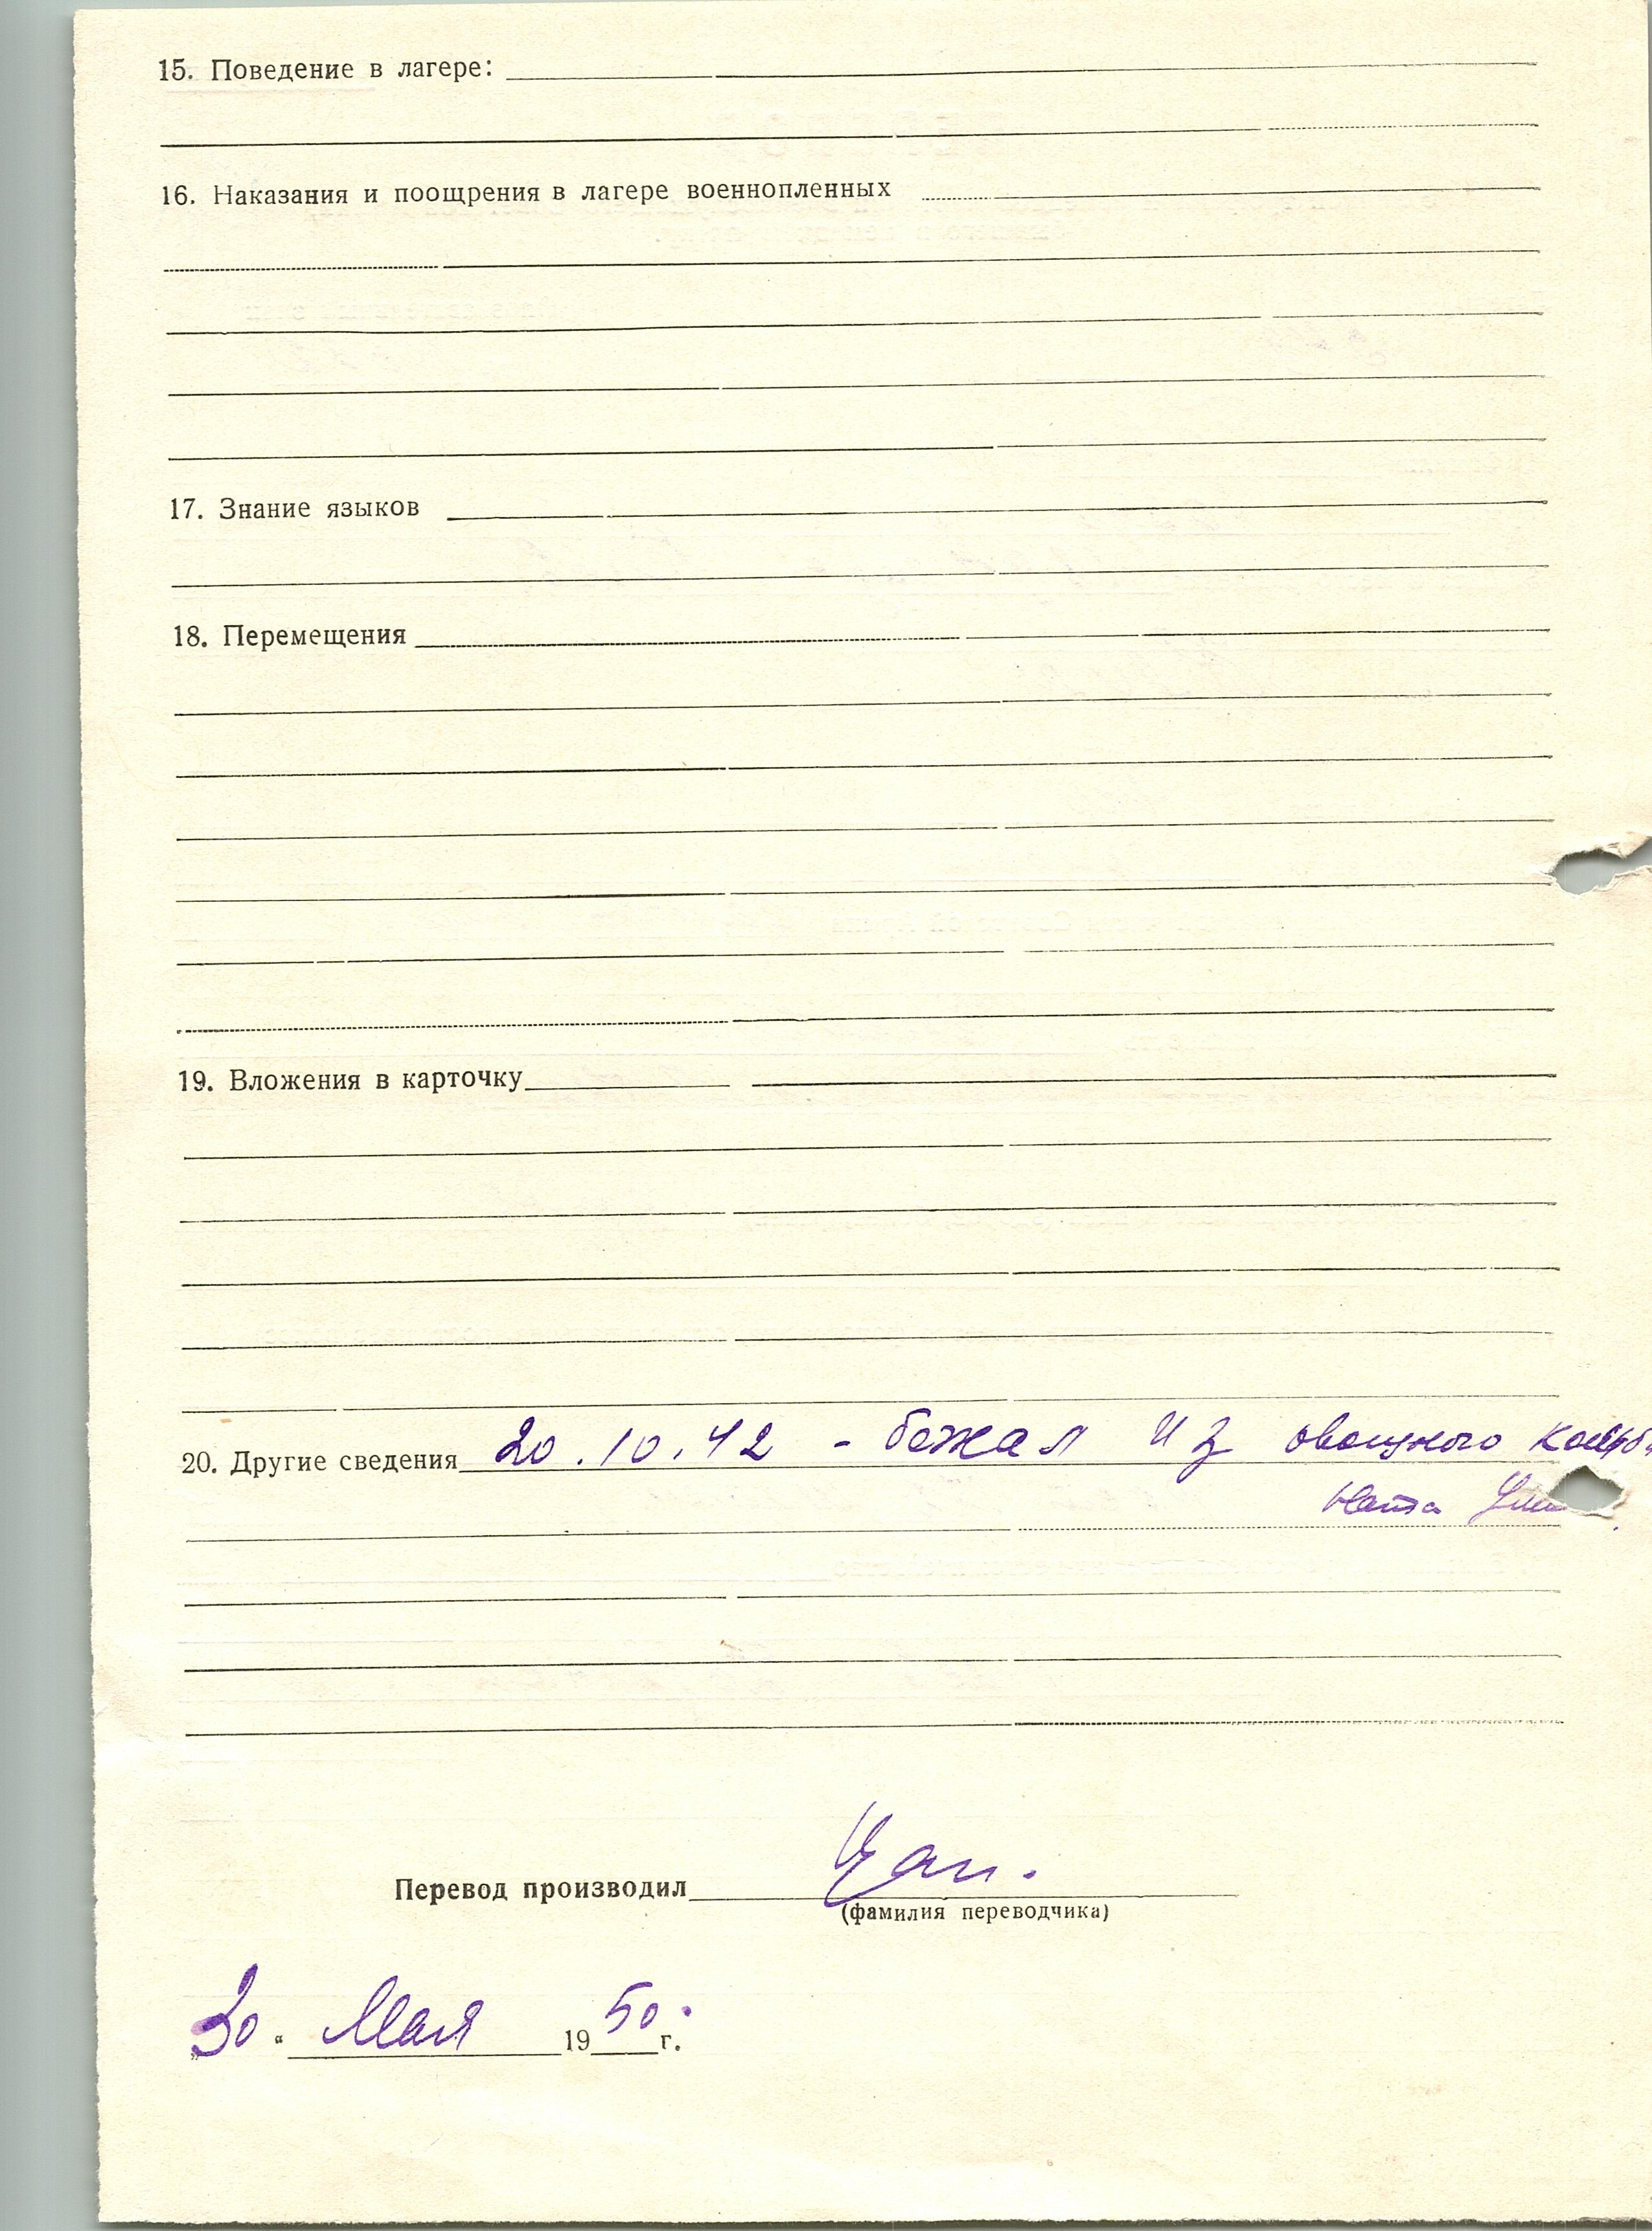 15. Поведение в лагере:
16. Наказания и поощрения в лагере военнопленных
17. Знание языков
18. Перемещения
19. Вложения в карточку
20. Другие сведения 20.10.42 - бежал из овощного
Перевод производил
(фамилия переводчика)
„30“ Мая 1950г.